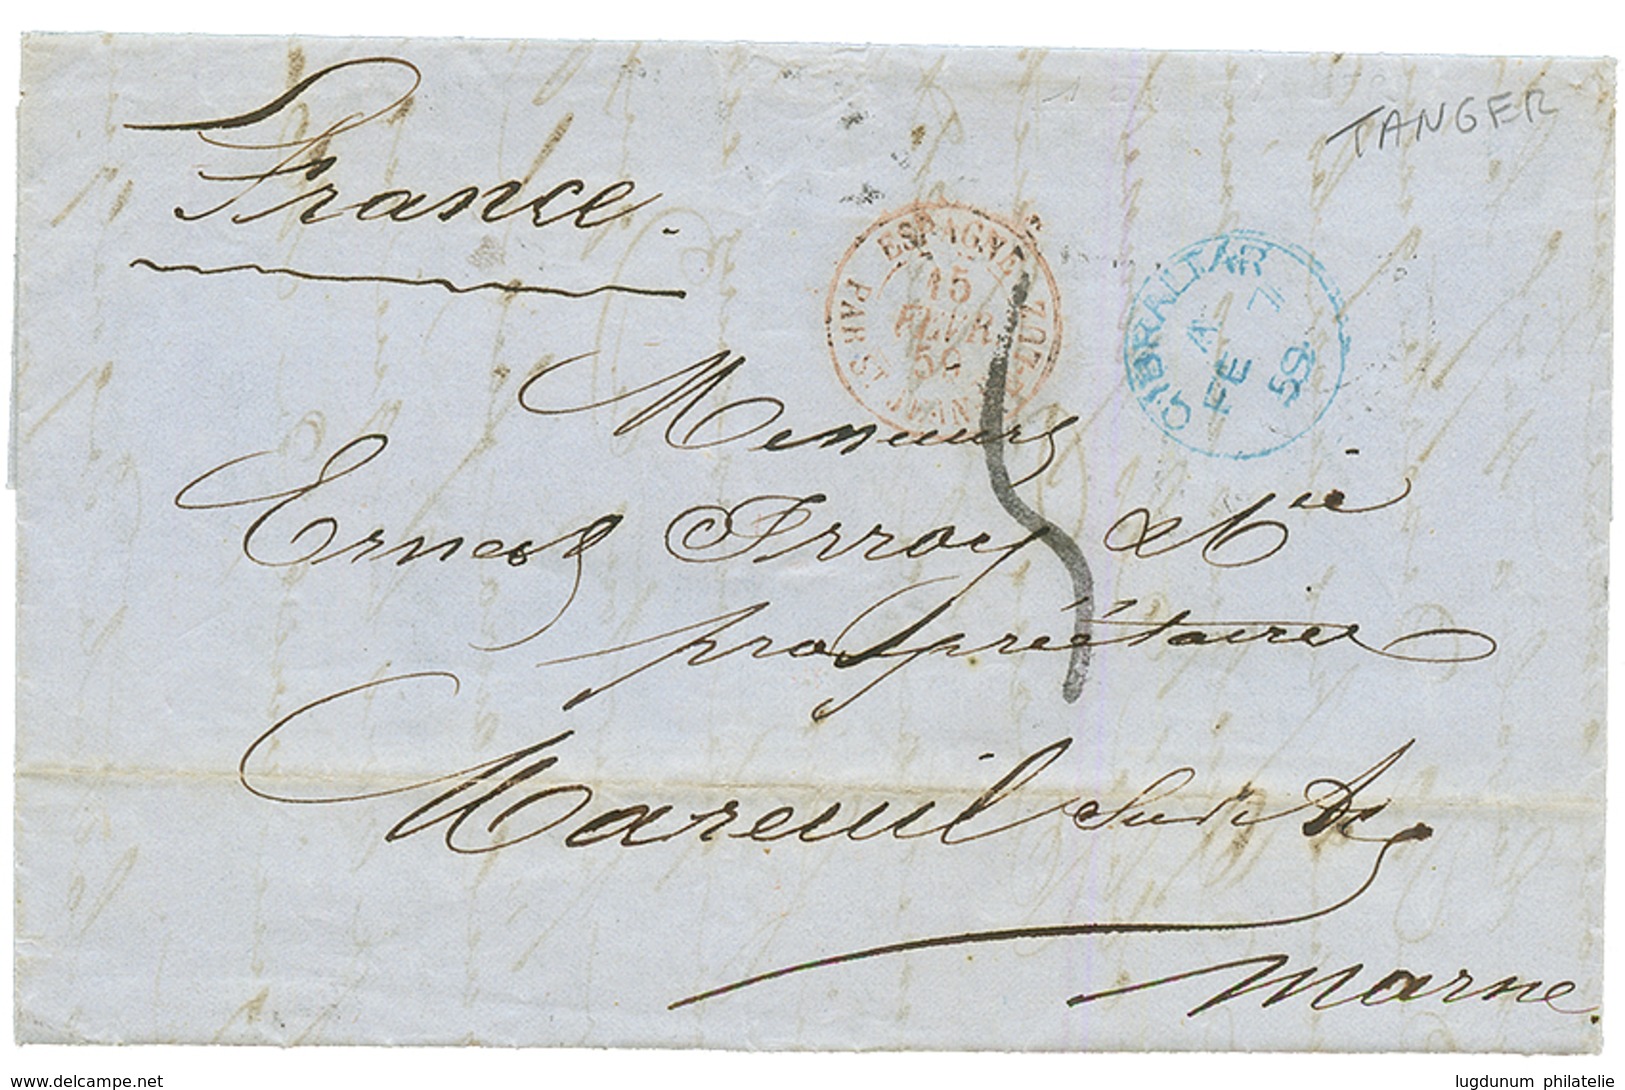 TANGER
France.
ESPAGNE
15
FEVR
59
PAR ST JEAN-DE-LUZ
GIBRALTAR
A
FE 7
59
Messieurs
Ernest Irroy & Cie
propriétaires
Mareuil Sur Ay
Marne.
delcampe.net
lugdunum philatelie